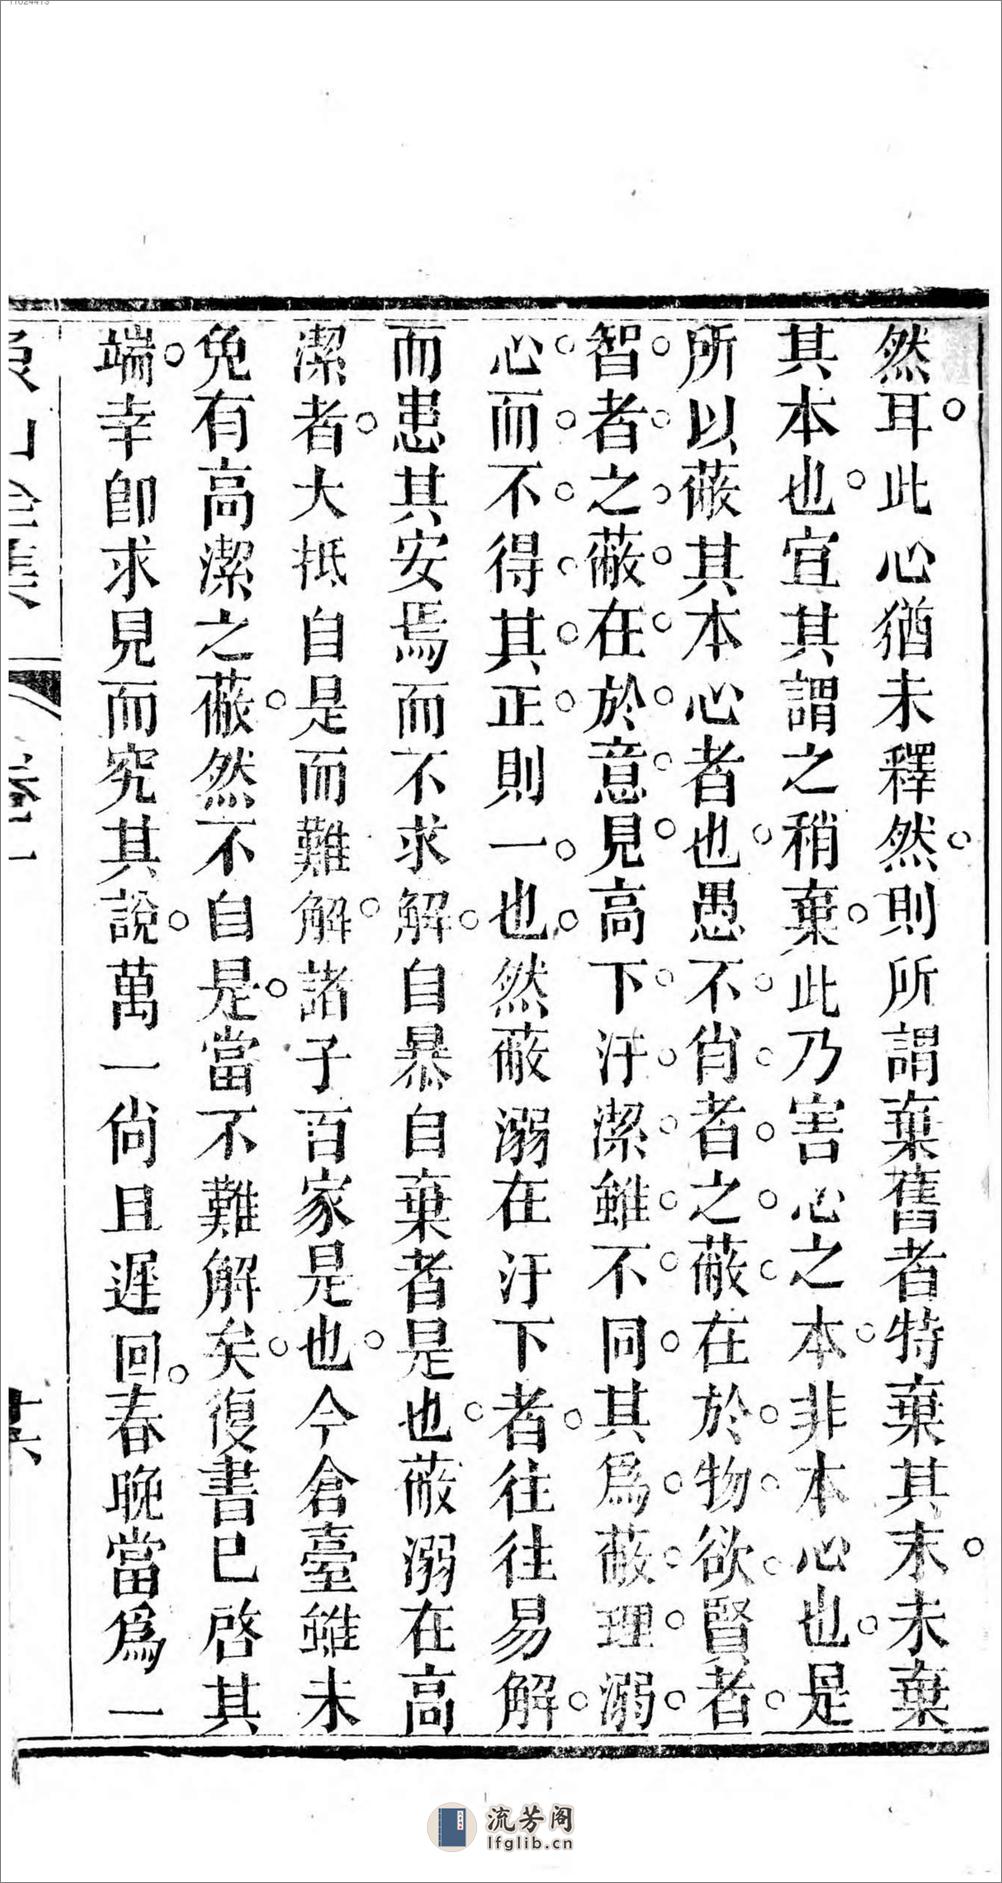 然耳此心猶未釋然則所謂棄舊者特棄其末未棄
其本也宜其謂之稍棄此乃害心之本非本心也是
所以蔽其本心者也愚不肖者之蔽在於物欲賢者
智者之蔽在於意見高下汙潔雖不同其爲蔽理溺
心而不得其正則一也然蔽溺在汙下者往往易解
而患其安焉而不求解自暴自棄者是也蔽溺在高
潔者大抵自是而難解諸子百家是也今倉臺雖未
免有高潔之蔽然不自是當不難解矣復書已啓其
端幸卽求見而究其說萬一尙且遲回春晚當爲一
流芳阁
lfglib.cn